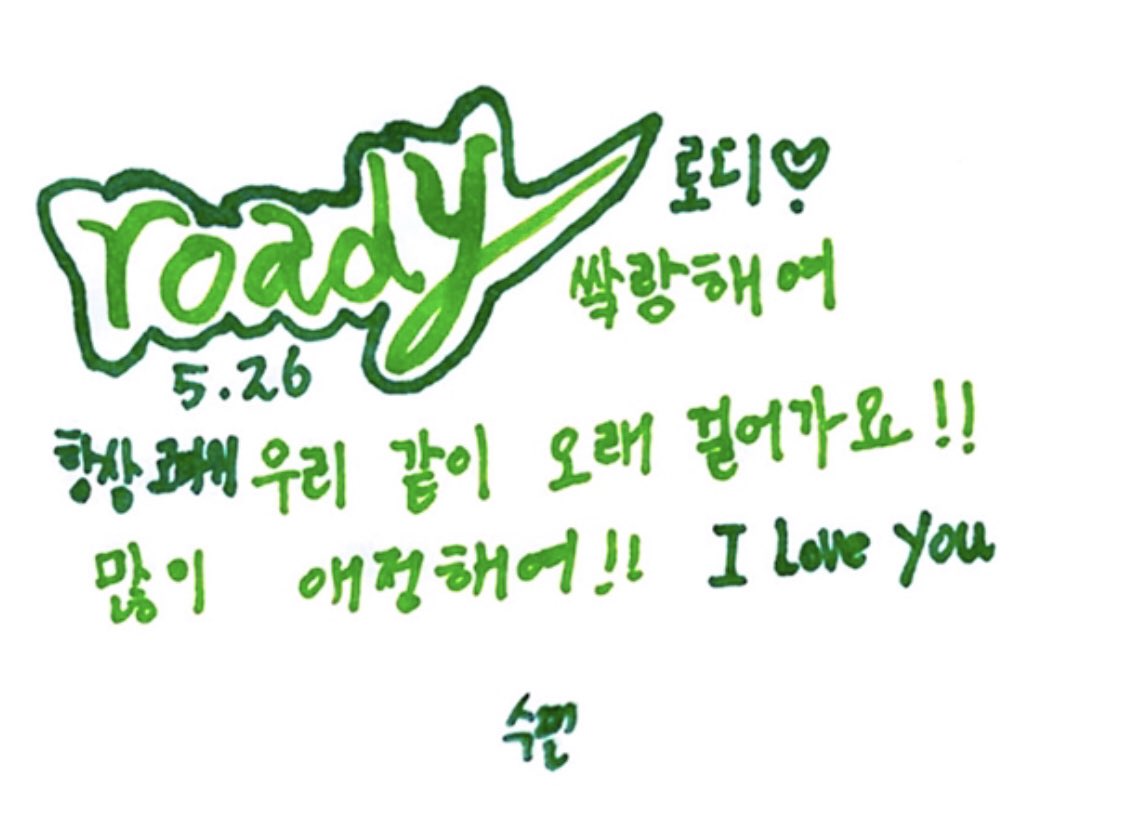 roady
로디♡
쏵랑해여
5.26
항상 우리 같이 오래 걸어가요!!
많이 애정해여!! I love you